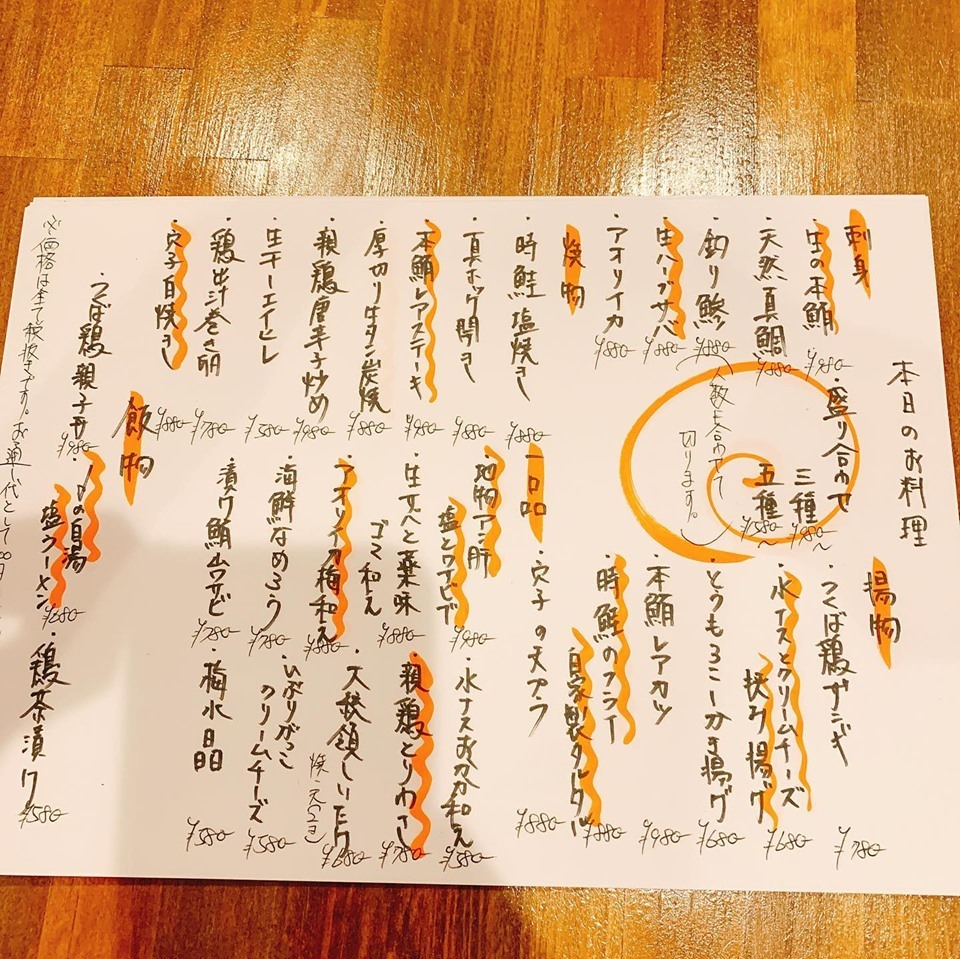 本日のお料理
刺身
・生の本鮪 ¥980-
・天然真鯛 ¥880-
・釣り鯵 ¥880-
・生ハーブサバ ¥880-
・アオリイカ ¥880-
・盛り合わせ
三種 ¥980-〜
五種 ¥1580-〜
(人数に合わせて
切ります。)
焼物
・時鮭塩焼き ¥880-
・真ホッケ開き ¥880-
・本鮪レアステーキ ¥980-
・厚切り牛タン炭焼 ¥880-
・親鶏唐辛子炒め ¥980-
・生干しエイヒレ ¥580-
・鶏出汁巻き卵 ¥780-
・穴子白焼き ¥880-
揚物
・つくば鶏ザンギ ¥780-
・水ナスとクリームチーズ
挟み揚げ ¥680-
・とうもろこしかき揚げ ¥680-
・本鮪レアカツ ¥980-
・時鮭のフライ
自家製タルタル ¥880-
・穴子の天プラ ¥880-
一品
・地物アン肝
塩とワサビで ¥980-
・生タコと薬味
ゴマ和え ¥880-
・アオリイカ梅和え ¥880-
・海鮮なめろう ¥780-
・漬け鮪山ワサビ ¥780-
・水ナスおかか和え ¥580-
・親鶏とりわさ ¥780-
・大狭領しいたけ ¥680-
・いぶりがっこ
クリームチーズ ¥580-
・梅水晶 ¥580-
飯物
・つくば鶏親子丼 ¥980-
の白湯
塩ラーメン ¥680-
・鶏茶漬け ¥580-
※価格は全て税抜きです。お通し代として